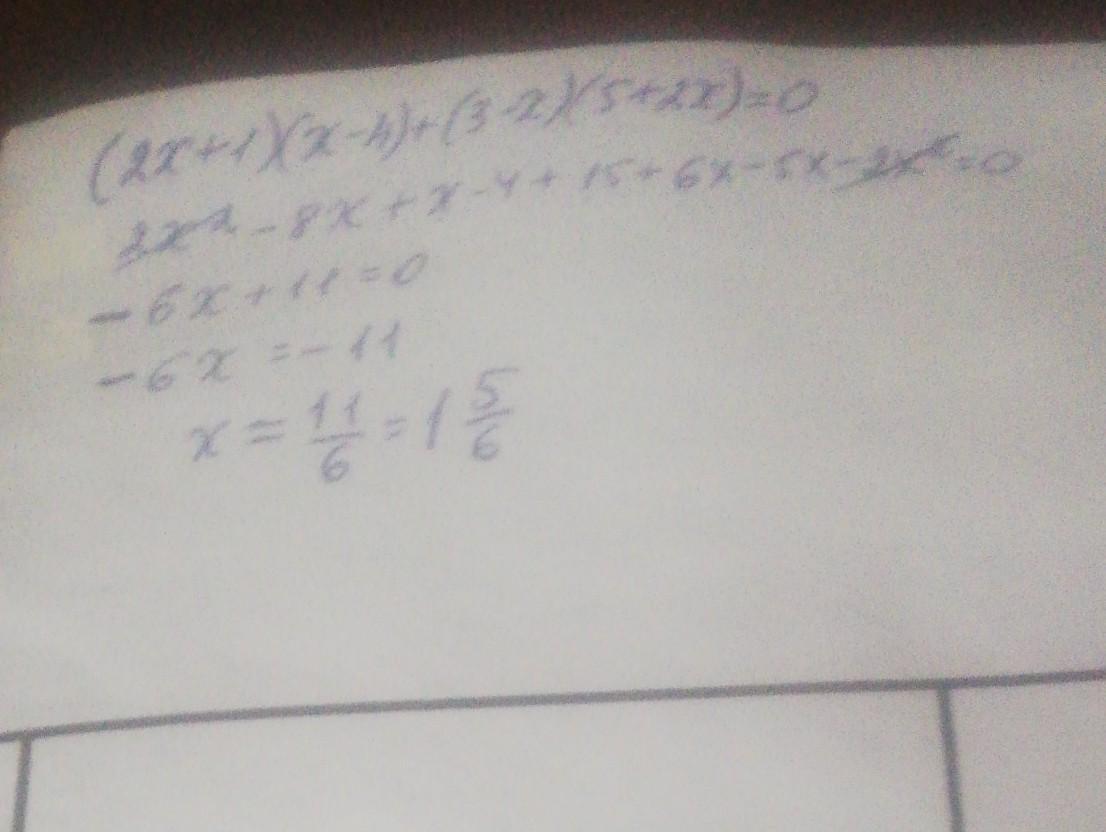 (2x+1)(x-4)+(3-x)(5+2x)=0
2x²-8x+x-4+15+6x-5x-2x²=0
-6x+11=0
-6x=-11
x=11/6=1 5/6